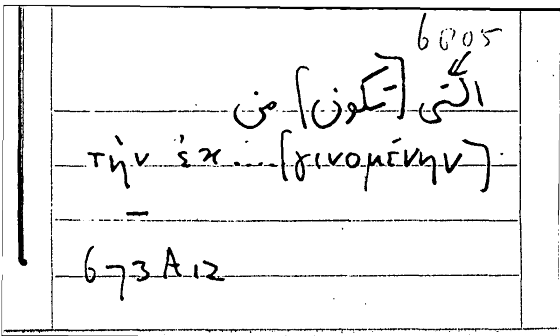 6005
التى [تكون] من
τὴν ἐκ .... [γινομένην]
—
673A12